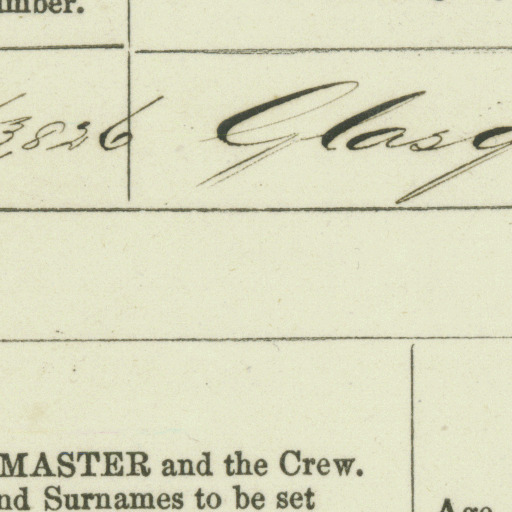 umber.
3826 Glasg
MASTER and the Crew.
nd Surnames to be set
Age